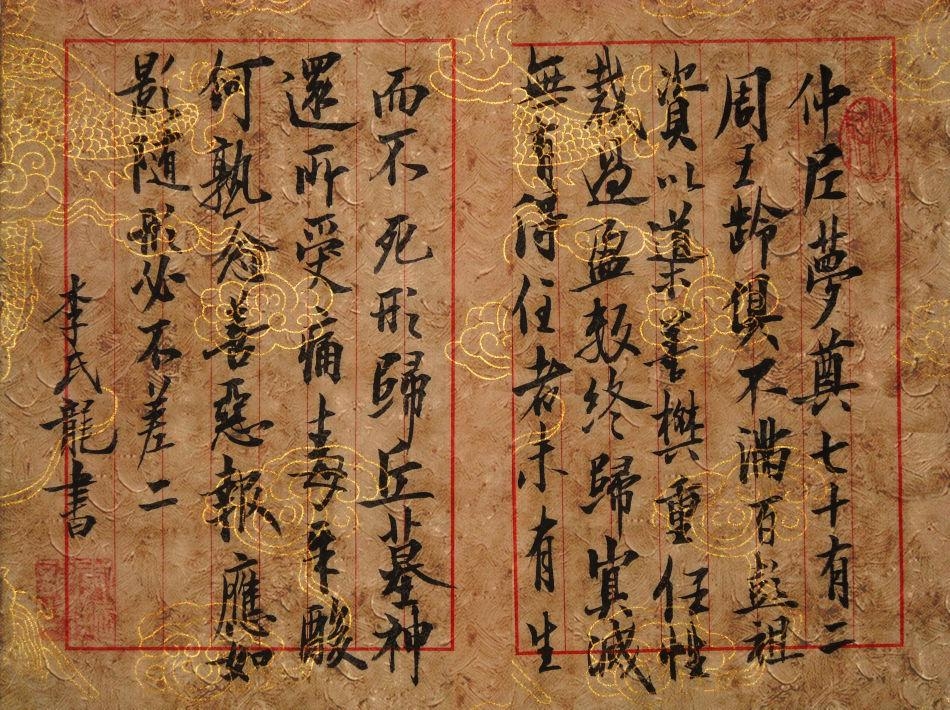 仲尼夢奠七十有二
周王齡俱不滿百彭祖
資以導養樊重任性
裁過盈数終歸冥滅
無有得住者未有生
而不死形歸丘墓神
還所受痛毒辛酸
何熟念善惡報應如
影随形必不差二
李氏龍書